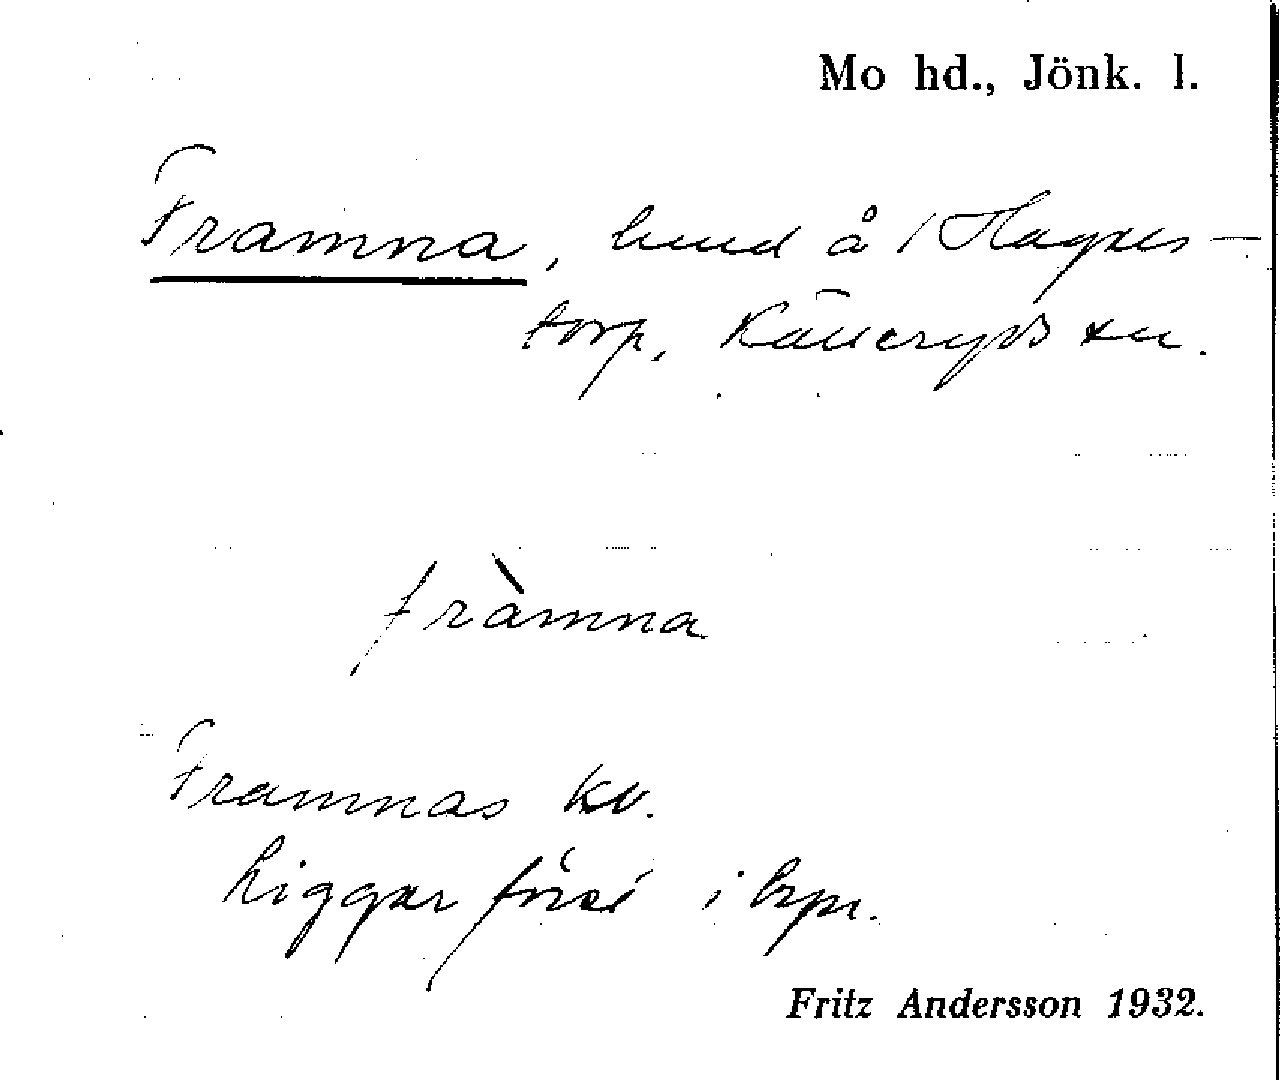 Mo hd., Jönk. l.
Framna, hmd å 1 Hagues-
torp, Källeryds sn.
fràmna
Framnas kv.
Ligger först i byn.
Fritz Andersson 1932.